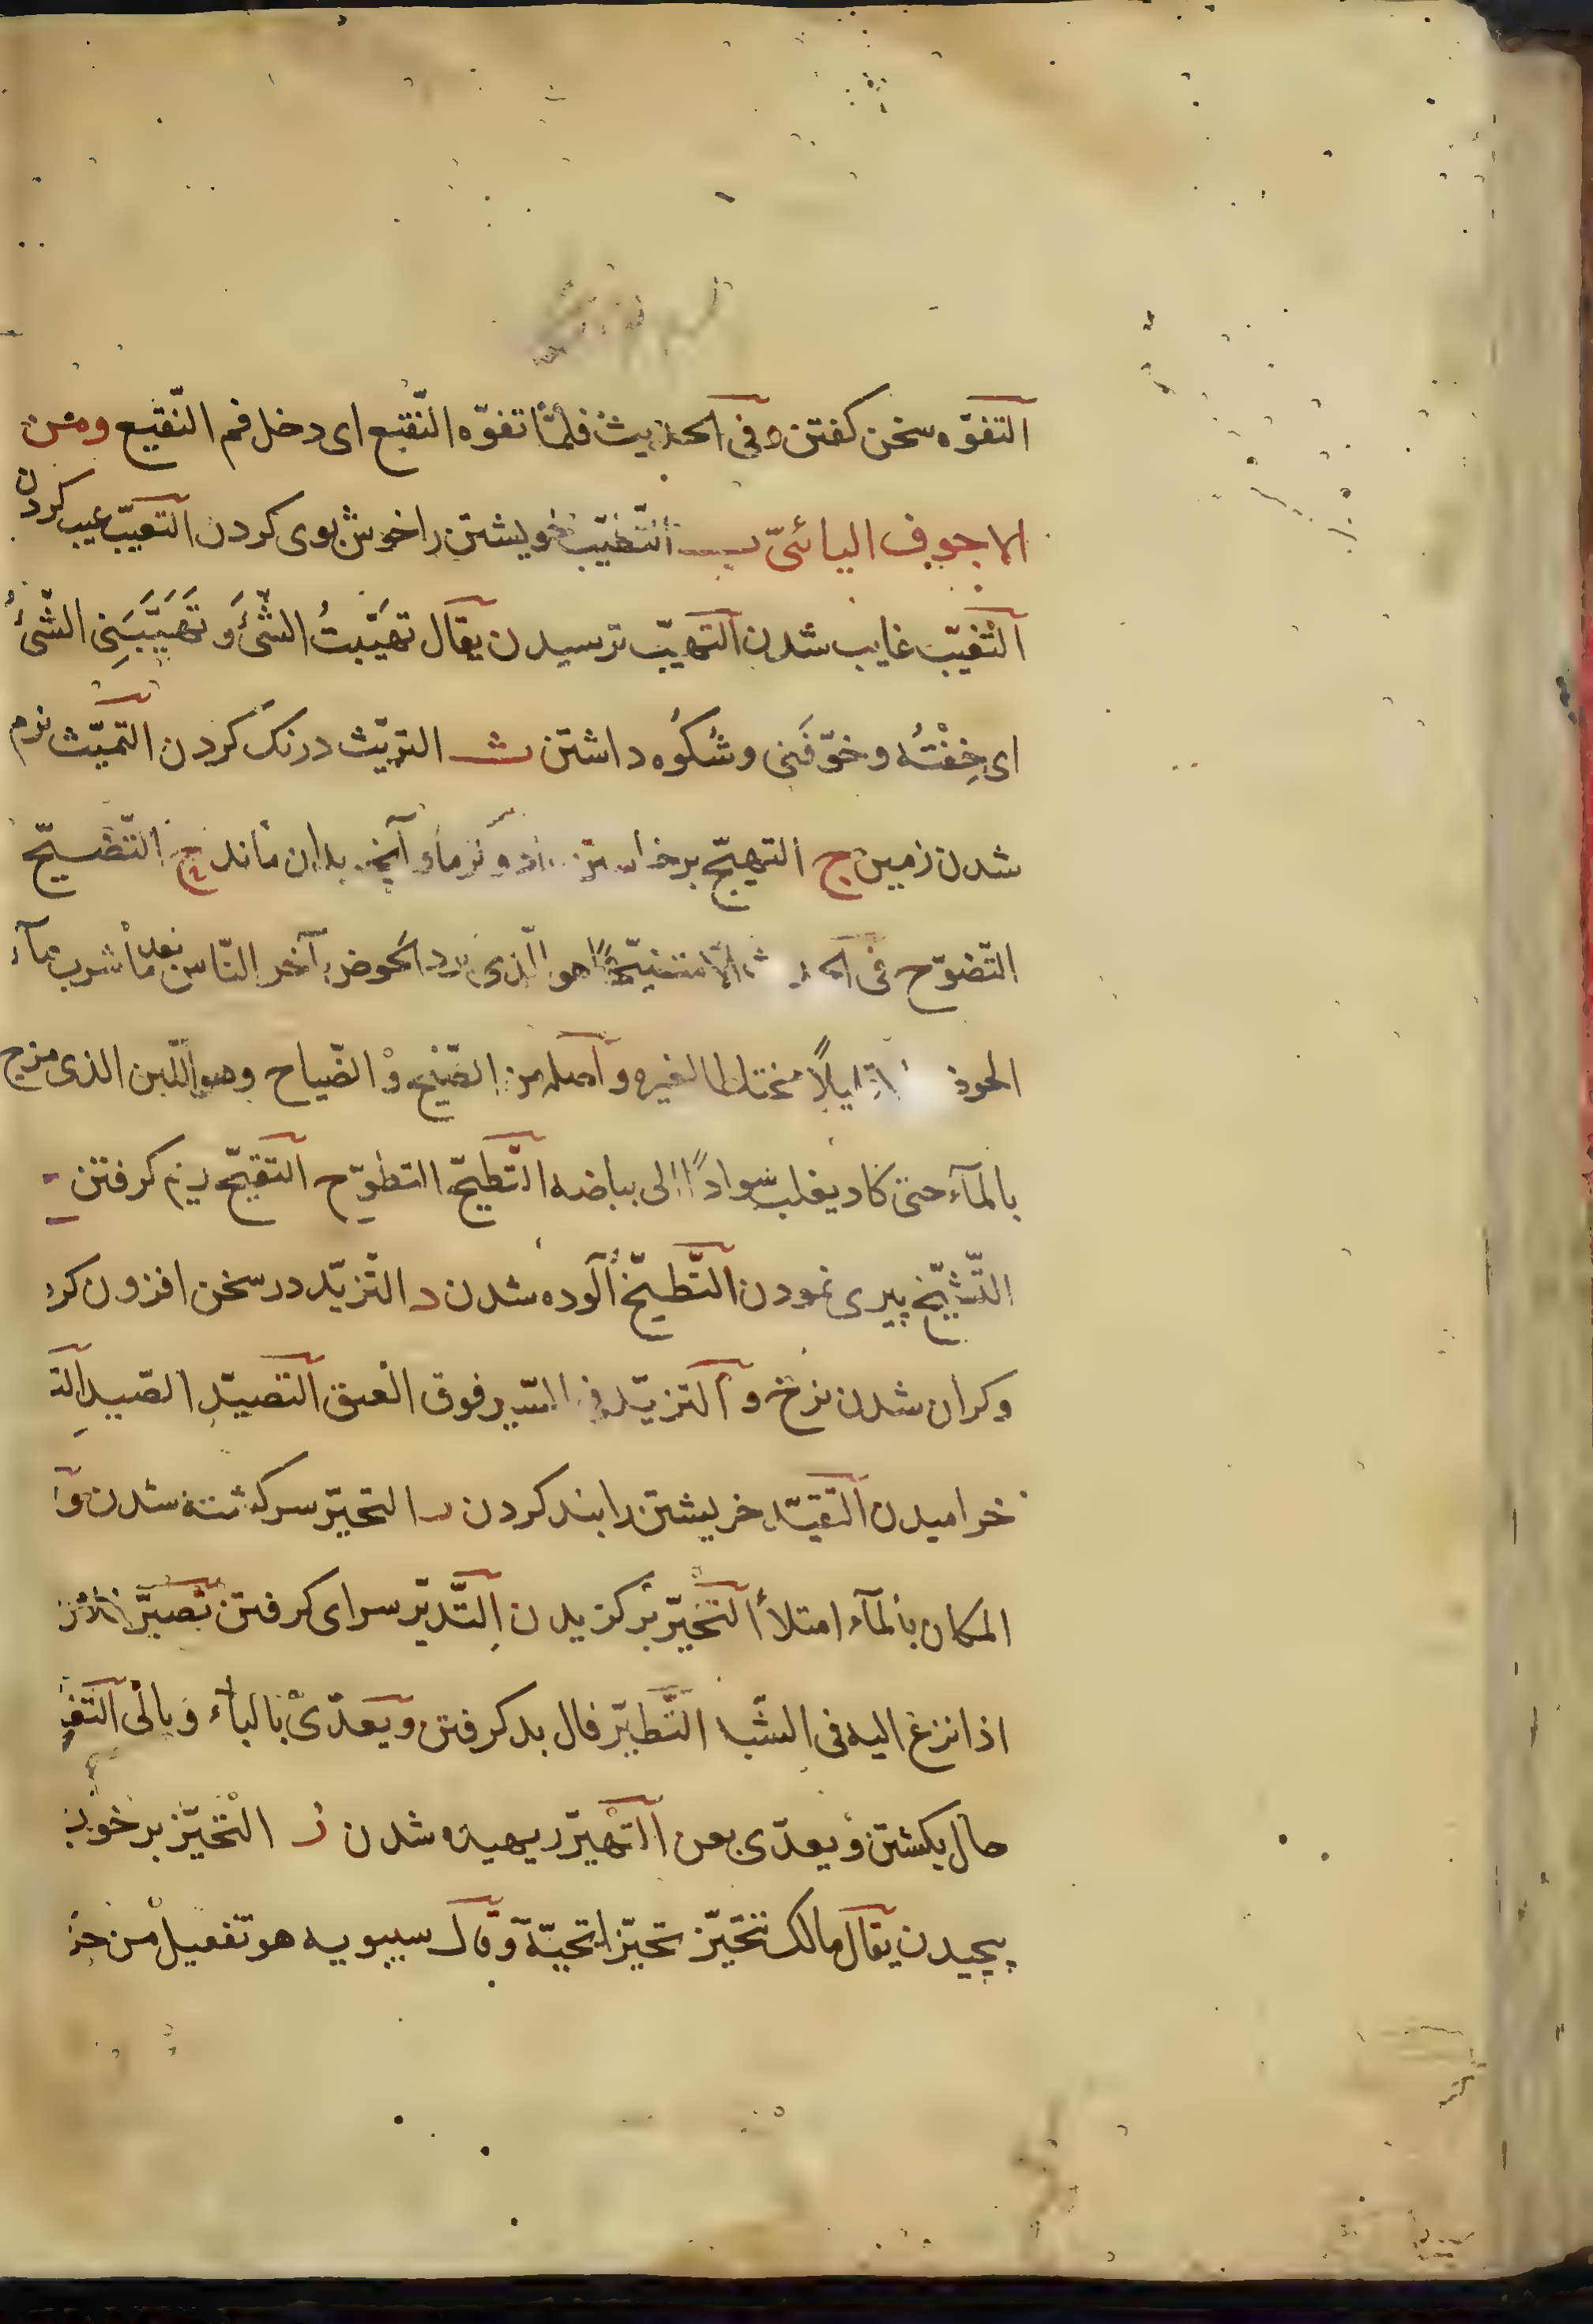 التفوّه سخن کفتن وفی الحدیث فلمّا تفوّه النّقیع ای دخل فم النّقیع ومن
الاجوف الیائیّ ب التّطیّب خویشتن راخوش بوی کردن التعیّب عیب کردن
التّغیّب غایب شدن التهیّب ترسیدن یقال تهیّبتُ الشّئَ و تَهَیَّبَنِی الشّئُ
ای خِفْتُه و خوّفَنی و شُکُوه داشتن ث التریّث درنک کردن التمیّث نرم
شدن زمین ج التهیّج برخاستن و کرماء و آنچ بدان ماند ح التّضیّح
التّضوّح فی هو الّذی یرد الحوض آخر النّاس بعد ما شرب ماء
الحوض قلیلاً مختلطا لغیره و اصله من الضّیْح و الضّیاح وهو اللّبن الذی مزج
بالمآء حتی کاد یغلب سواداً الی بیاضه التّطیّح التطوّح التقیّح ریم کرفتن
التّشیّخ پیری نمودن التّطیّخ آلوده شدن د التّزیّد در سخن افزون کرد
وکران شدن نرخ و التزیّد فی السّیر فوق العنق التصیّد الصّید
خرامیدن التقیّد خریشتن را بند کردن ر التحیّر سرکشته شدن و
المکان بالمآء امتلأ التّخیّر برکزیدن التّدیّر سرای کرفتن تصیّر
اذا نزع الیه فی الشّبه التّطیّر فال بد کرفتن و یعدّی بالباء و بالی
حال بکشتن و یعدّی بعن التّهیّر ریهیده شدن ز التّحیّز بر خود
پیچیدن یقال مالک تتحیّز تحیّز الحیّة و قال سیبویه هو تفعیل من حز